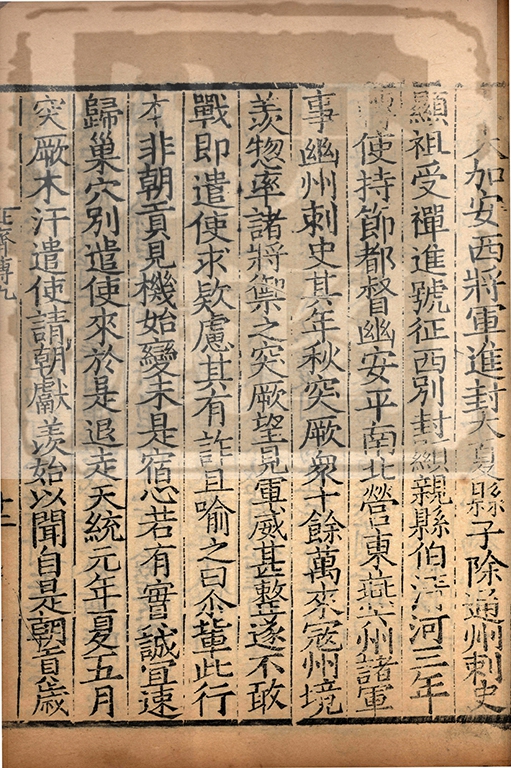 大加安西將軍進封大夏縣子除通州刺史
顯祖受禪進號征西別封顯親縣伯清河三年
使持節都督幽安平南北營東燕六州諸軍
事幽州刺史其年秋突厥衆十餘萬來寇州境
羨惣率諸將禦之突厥望見軍威甚整遂不敢
戰即遣使求欵慮其有詐且喻之曰尒輩此行
本非朝貢見機始變未是宿心若有實誠宜速
歸巢穴別遣使來於是退走天統元年夏五月
突厥木汗遣使請朝獻羨始以聞自是朝貢歲